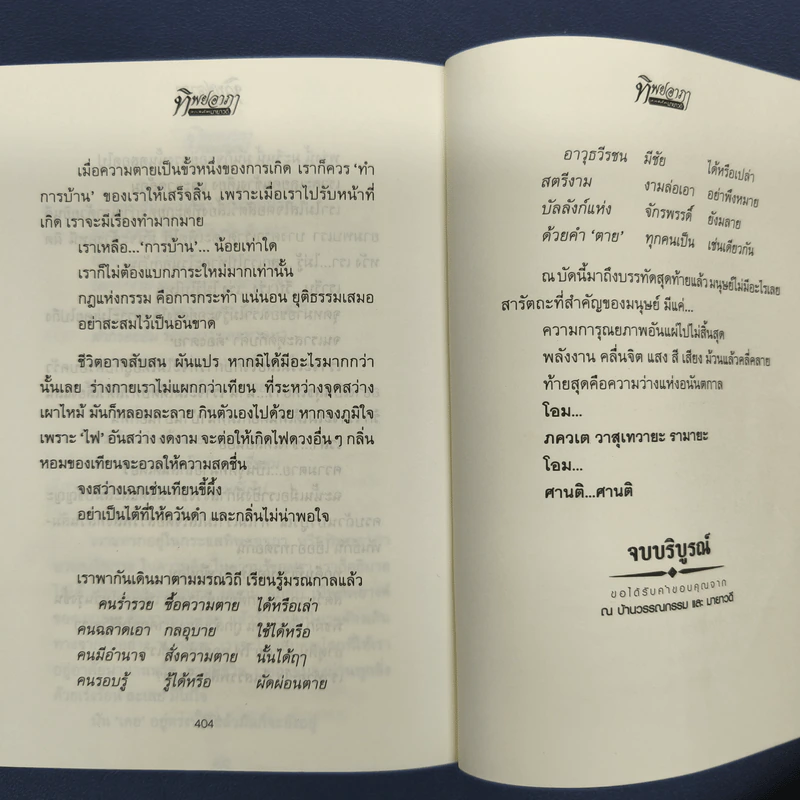 ทิพยอาภา
เมื่อความตายเป็นขั้วหนึ่งของการเกิด เราก็ควร ‘ทำ
การบ้าน’ ของเราให้เสร็จสิ้น เพราะเมื่อเราไปรับหน้าที่
เกิด เราจะมีเรื่องทำมากมาย
เราเหลือ...‘การบ้าน’... น้อยเท่าใด
เราก็ไม่ต้องแบกภาระใหม่มากเท่านั้น
กฎแห่งกรรม คือการกระทำ แน่นอน ยุติธรรมเสมอ
อย่าสะสมไว้เป็นอันขาด
ชีวิตอาจสับสน ผันแปร หากมิได้มีอะไรมากกว่า
นั้นเลย ร่างกายเราไม่แผกกว่าเทียน ที่ระหว่างจุดสว่าง
เผาไหม้ มันก็หลอมละลาย กินตัวเองไปด้วย หากจงภูมิใจ
เพราะ ‘ไฟ’ อันสว่าง งดงาม จะต่อให้เกิดไฟดวงอื่นๆ กลิ่น
หอมของเทียนจะอวลให้ความสดชื่น
จงสว่างเฉกเช่นเทียนขี้ผึ้ง
อย่าเป็นไต้ที่ให้ควันดำ และกลิ่นไม่น่าพอใจ
เราพากันเดินมาตามมรณวิถี เรียนรู้มรณกาลแล้ว
คนร่ำรวย ซื้อความตาย ได้หรือเล่า
คนฉลาดเอา กลอุบาย ใช้ได้หรือ
คนมีอำนาจ สั่งความตาย นั้นได้ฤๅ
คนรอบรู้ รู้ได้หรือ ผัดผ่อนตาย
404
ทิพยอาภา
อาวุธวีรชน มีชัย ได้หรือเปล่า
สตรีงาม งามล่อเอา อย่าพึงหมาย
บัลลังก์แห่ง จักรพรรดิ์ ยังมลาย
ด้วยคำ ‘ตาย’ ทุกคนเป็น เช่นเดียวกัน
ณ บัดนี้มาถึงบรรทัดสุดท้ายแล้ว มนุษย์ไม่มีอะไรเลย
สารัตถะที่สำคัญของมนุษย์ มีแค่...
ความการุณยภาพอันแผ่ไปไม่สิ้นสุด
พลังงาน คลื่นจิต แสง สี เสียง ม้วนแล้วคลี่คลาย
ท้ายสุดคือความว่างแห่งอนันตกาล
โอม...
ภควเต วาสุเทวายะ รามายะ
โอม...
ศานติ...ศานติ
จบบริบูรณ์
ขอได้รับคำขอบคุณจาก
ณ บ้านวรรณกรรม และ มายาวดี